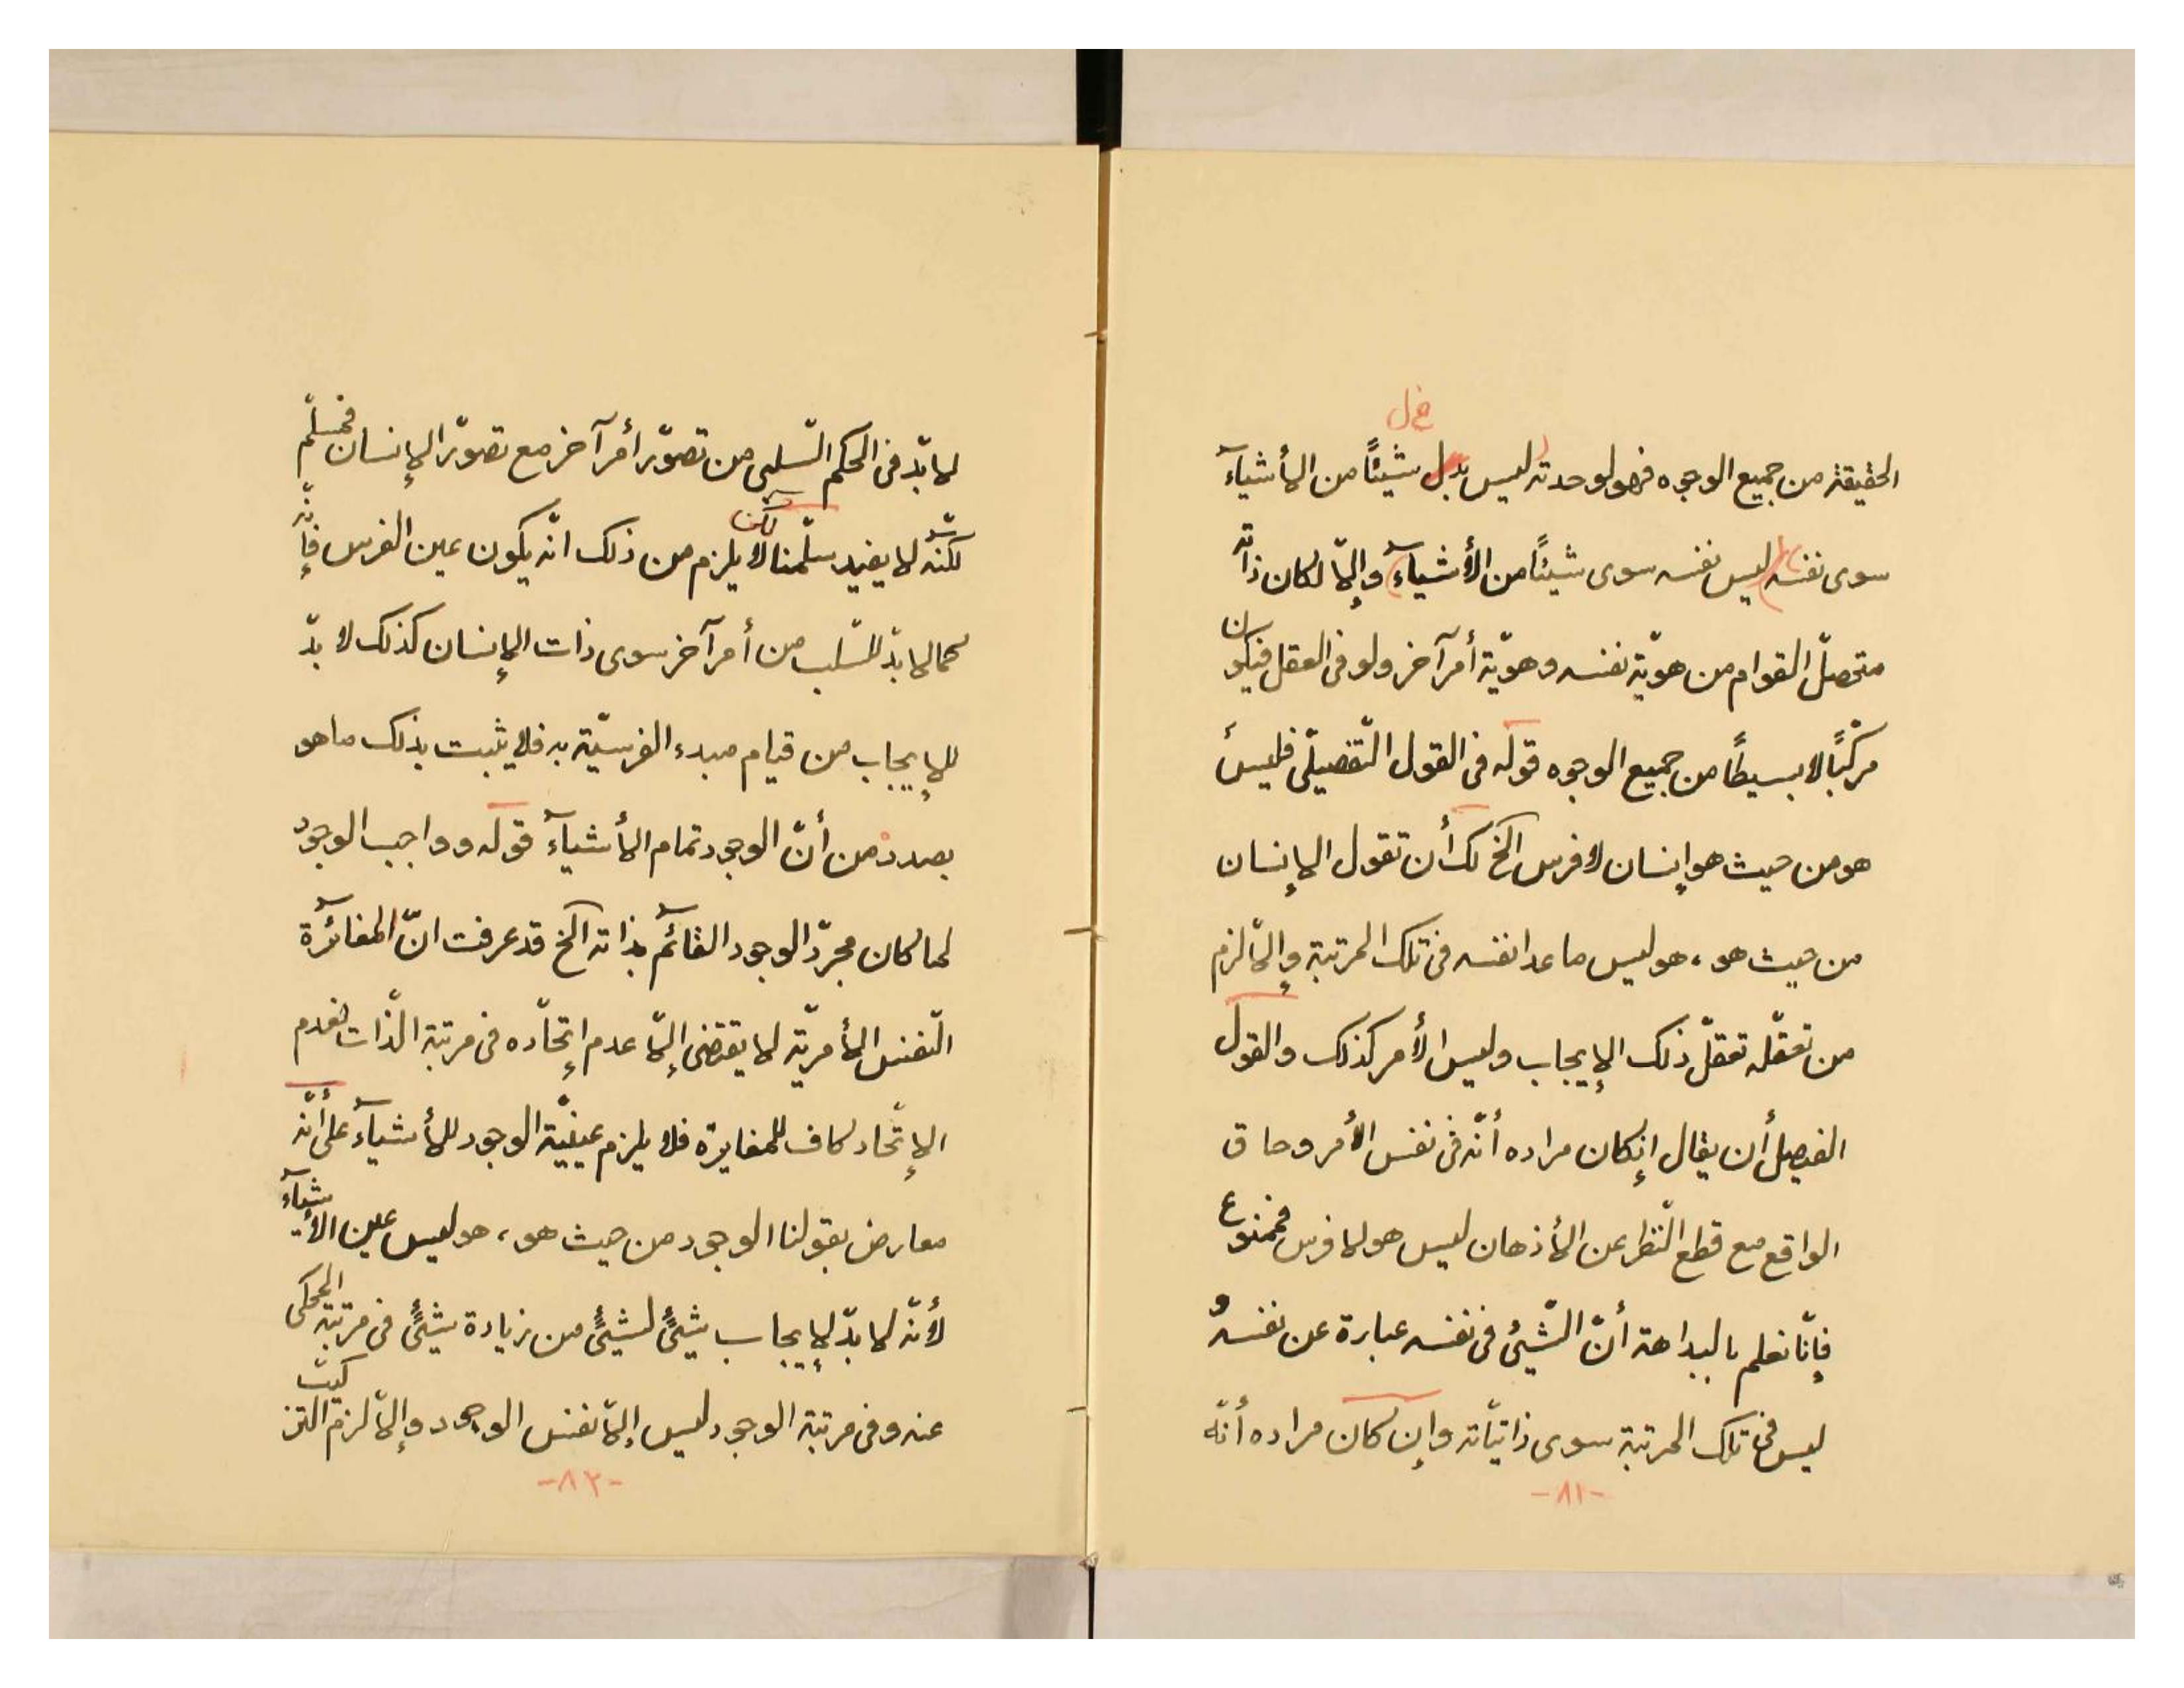 خ ل
الحقيقة من جميع الوجوه فهو لوحدته ليس بدل شيئًا من الأشيآء
سوى نفسه (ليس نفسه سوى شيئًا من الأشيآء) وإلّا لكان ذاته
متحصلّ القوام من هويّة نفسه وهويّة أمر آخر ولو فى العقل فيكون
مركّبًا لا بسيطًا من جميع الوجوه قوله فى القول التّفصيلّى فليس
هو من حيث هو إنسان لا فرس الخ لك أن تقول الإنسان
من حيث هو، هو ليس ما عدا نفسه فى تلك المرتبة وإلّا لزم
من تعقّله تعقلّ ذلك الإيجاب وليس الأمر كذلك والقول
الفيصل أن يقال إنكان مراده أنّه فى نفس الأمر وحاق
الواقع مع قطع النّظر عن الأذهان ليس هو لا فرس فممنوع
فإنّا نعلم بالبداهة أنّ الشّيئ فى نفسه عبارة عن نفسه و
ليس فى تلك المرتبة سوى ذاتيّاته وإن كان مراده أنّه
-٨١-
لا بدّ فى الحكم السّلبى من تصوّر أمر آخر مع تصوّر الإنسان فمسلّم
لكنّه لا يفيد سلّمنا لكن لا يلزم من ذلك انّه يكون عين الفرس فإنّه
كما لا بدّ للسّلب من أمر آخر سوى ذات الإنسان كذلك لا بدّ
للإيجاب من قيام مبدء الفرسيّة به فلا يثبت بذلك ما هو
بصدده من أنّ الوجود تمام الأشيآء قوله وواجب الوجود
لما كان مجرّد الوجود القآئم بذاته الخ قد عرفت انّ المغائرة
النّفس الأمريّة لا يقتضى إلّا عدم إتحّاده فى مرتبة الذّات فعدم
الإتّحاد كاف للمغايرة فلا يلزم عينيّة الوجود للأشيآء على أنّه
معارض بقولنا الوجود من حيث هو، هو ليس عين الأشيآء
لأنّه لا بدّ لإيجاب شيئٍ لشيئٍ من زيادة شيئٍ فى مرتبة المحكى
عنه وفى مرتبة الوجود ليس إلّا نفس الوجود وإلّا لزم التركيب
-٨٢-